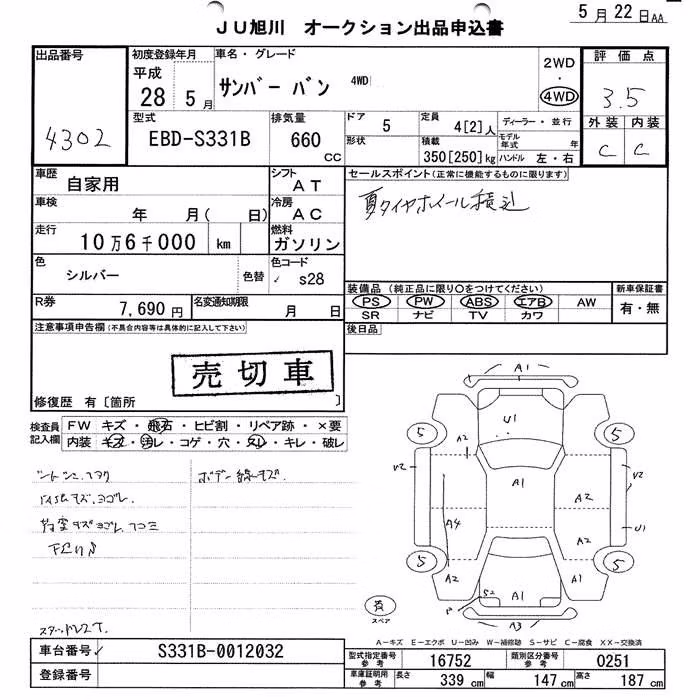 5月22日AA
JU旭川 オークション出品申込書
出品番号
4302
初度登録年月
平成
28 5月
車名・グレード
サンバー バン 4WD
2WD
・
4WD
評価点
3.5
外装 内装
C C
型式
EBD-S331B
排気量
660
CC
ドア 5
形状
定員 4[2]人
積載 350[250]kg
ディーラー・並行
モデル年式 年
ハンドル 左・右
車歴
自家用
シフト
AT
セールスポイント(正常に機能するものに限ります)
夏タイヤホイール積込
車検
年 月( 日)
冷房
AC
走行
10万6千000 km
燃料
ガソリン
色
シルバー
色替
色コード
s28
装備品 (純正品に限り○をつけてください)
PS PW ABS エアB AW
SR ナビ TV カワ
新車保証書
有・無
R券
7,690円
名変通知期限
月 日
後日品
注意事項申告欄(不具合内容等は具体的に記入して下さい)
売切車
修復歴 有[箇所 ]
検査員記入欄
FW キズ・飛石・ヒビ割・リペア跡・×要
内装 キズ・汚レ・コゲ・穴・スレ・キレ・破レ
ボデー 線キズ.
A1
U1
5 5
A2
V2 V2
A1
A2
A4
U1
A2 A2
5 5
S2
A1
P
A3
スペア
A-キズ E-エクボ U-凹み W-補修跡 S-サビ C-腐食 XX-交換済
スタッドレスT.
車台番号
S331B-0012032
登録番号
型式指定番号 参考 16752
類別区分番号 参考 0251
車庫証明用 参考 長さ 339cm 幅 147cm 高さ 187cm